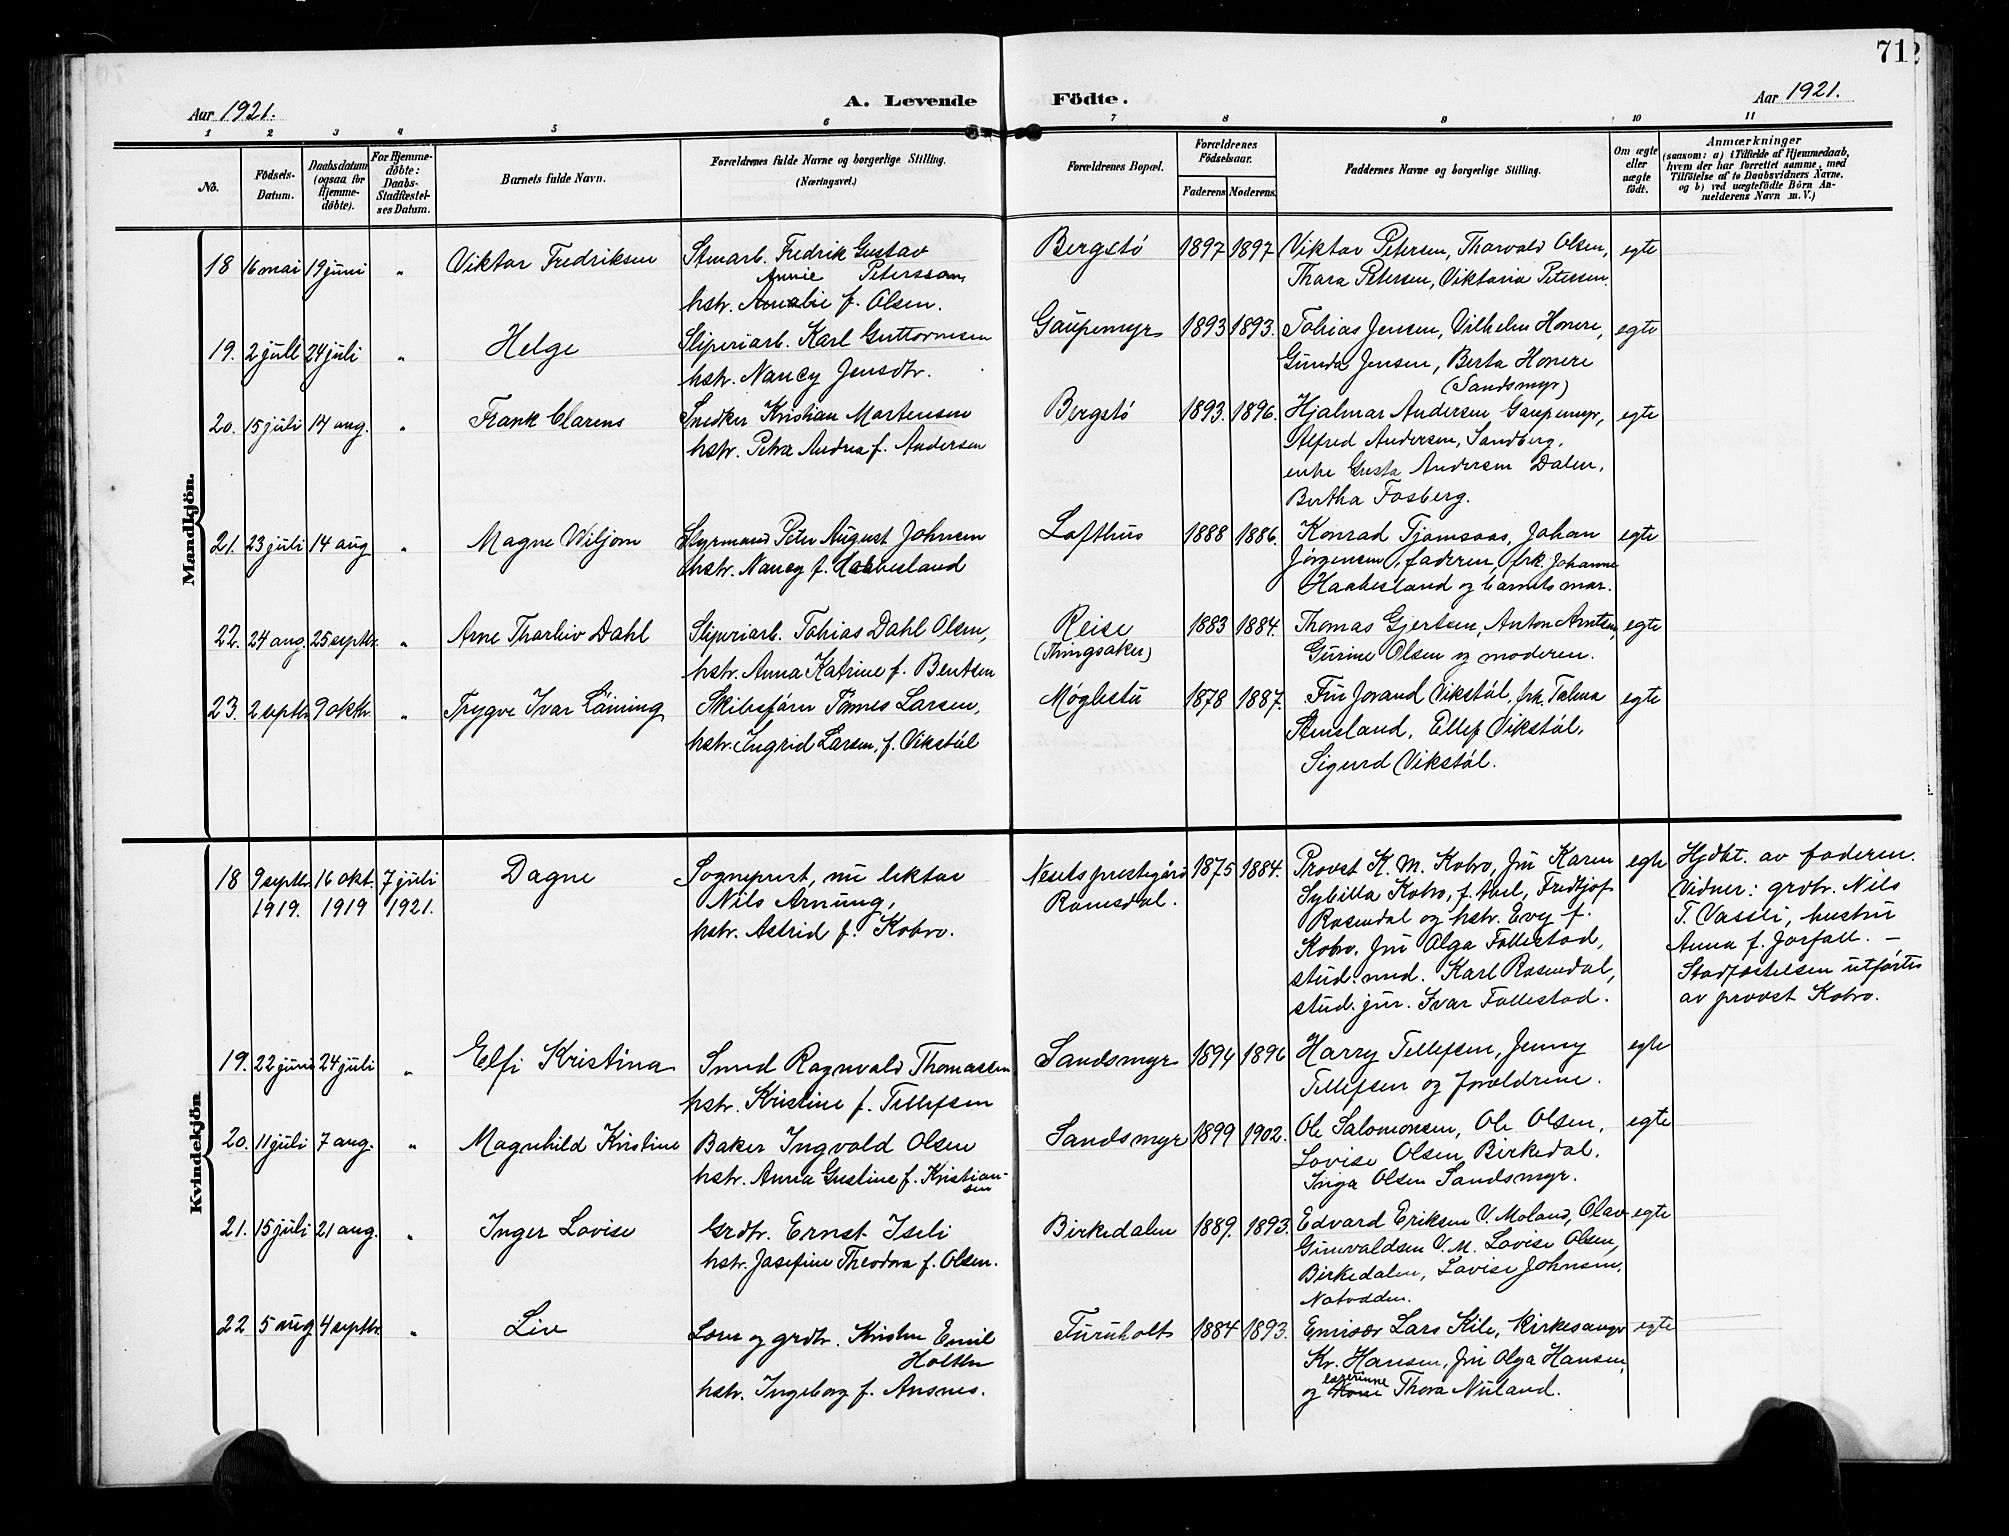 71
Aar 1921.
A. Levende
Födte.
Aar 1921.
1 2 3 4 5 6 7 8 9 10 11
No.
Födsels-
Datum.
Daabsdatum
(ogsaa for
Hjemme-
döbte).
For Hjemme-
döbte:
Daabs-
Stadfæstel-
ses Datum.
Barnets fulde Navn.
Forældrenes fulde Navne og borgerlige Stilling.
(Næringsvei.)
Forældrenes Bopæl.
Forældrenes
Födselsaar.
Faderens. Moderens.
Faddernes Navne og borgerlige Stilling.
Om ægte
eller
uægte
födt.
Anmærkninger
(saasom: a) i Tilfælde af Hjemmedaab,
hvem der har forrettet samme, med
Tilföielse af to Daabsvidners Navne.
og b) ved uægtefödte Börn An-
melderens Navn m. V.)
Mandkjön.
18 16 mai 19 juni " Viktor Fredriksen
Stuarb. Fredrik Gustav
Annie Petersson,
hstr. Amalie f. Olsen.
Bergstö 1897 1897
Viktor Petersen, Thorvald Olsen,
Thora Petersen, Viktoria Petersen.
egte
19. 2 juli 24 juli " Helge
Sliperiarb. Karl Guttormsen
hstr. Nancy Jensdtr.
Gaupemyr 1893 1893.
Tobias Jensen, Vilhelm Honere,
Gunda Jensen, Berta Honere
(Sandsmyr)
egte
20. 15 juli 14 aug. " Frank Clarens
Snedker Kristian Mortensen
hstr. Petra Andrea f. Andersen
Bergstö 1893. 1896.
Hjalmar Andersen Gaupemyr,
Alfred Andersen, Sandberg,
enke Gusta Andersen Dalen,
Bertha Fosberg.
egte
21. 23 juli 14 aug " Magne Wiljom
Styrmand Peter August Johnsen
hstr. Nancy f. Haabesland
Lofthus 1888 1886.
Konrad Tjomsaas, Johan
Jörgensen, faderen, frk. Johanne
Haabesland og barnets mor.
egte
22. 24 aug. 25 septbr. " Arne Thorleiv Dahl
Sliperiarb. Tobias Dahl Olsen,
hstr. Anna Katrine f. Bentsen
Reise
(Thingsaker)
1883 1884.
Thomas Gjertsen, Anton Arntsen,
Gurine Olsen og moderen.
egte
23. 2 septbr. 9 oktbr. " Trygve Ivar Läining
Skibsförer Tömes Larsen,
hstr. Ingrid Larsen, f. Vikstöl
Möglestu 1878 1887.
Fru Jorand Vikstöl, frk. Talma
Amsland, Ellef Vikstöl,
Sigurd Vikstöl.
egte
Kvindekjön
18 9 septbr. 16 okt. 7 juli
1919. 1919 1921.
Dagne
Sogneprest, nu lektor
Nils Arnung,
hstr. Astrid f. Kobro.
Nesets prestegård
Romsdal.
1875 1884.
Provst K. M. Kobro, fru Karen
Sybilla Kobro, f. Abel, Fredtjof
Rosendal og hstr. Evy f.
Kobro. fru Olga Follestad,
stud. med. Karl Rosendal,
stud. jur. Ivar Follestad.
egte
Hjdbt. av faderen.
Vidner: grdbr. Nils
T. Vassli, hustru
Anna f. Jorfall. –
Stadfæstelsen utförtes
av provst Kobro.
19. 22 juni 24 juli " Elfi Kristina
Smed Ragnvald Thomassen
hstr. Kristine f. Tellefsen
Sandsmyr 1894 1896
Harry Tellefsen, Jenny
Tellefsen og forældrene.
egte
20. 11 juli 7 aug. " Magnhild Kristine
Baker Ingvald Olsen
hstr. Anna Gustine f. Kristian-
sen
Sandsmyr 1899 1902.
Ole Salomonsen, Ole Olsen,
Lovise Olsen Birkedal,
Inga Olsen Sandsmyr.
egte
21. 15 juli 21 aug. " Inger Lovise
Grdbr. Ernst Iseli
hstr. Josefine Theodora f. Olsen.
Birkedalen 1889. 1893.
Edvard Eriksen V. Moland, Olav
Gunvaldsen V. M. Lovise Olsen,
Birkedalen, Lovise Johnsen,
Notodden.
egte
22 5 aug 4 septbr. " Liv
Lærer og grdbr. Kristen Emil
Holten
hstr. Ingeborg f. Ansnes.
Furuholt 1884 1893.
Emisær Lars Kile, Kirkesanger
Kr. Hansen, fru Olga Hansen,
lærerinne
og Thora Nuland.
egte